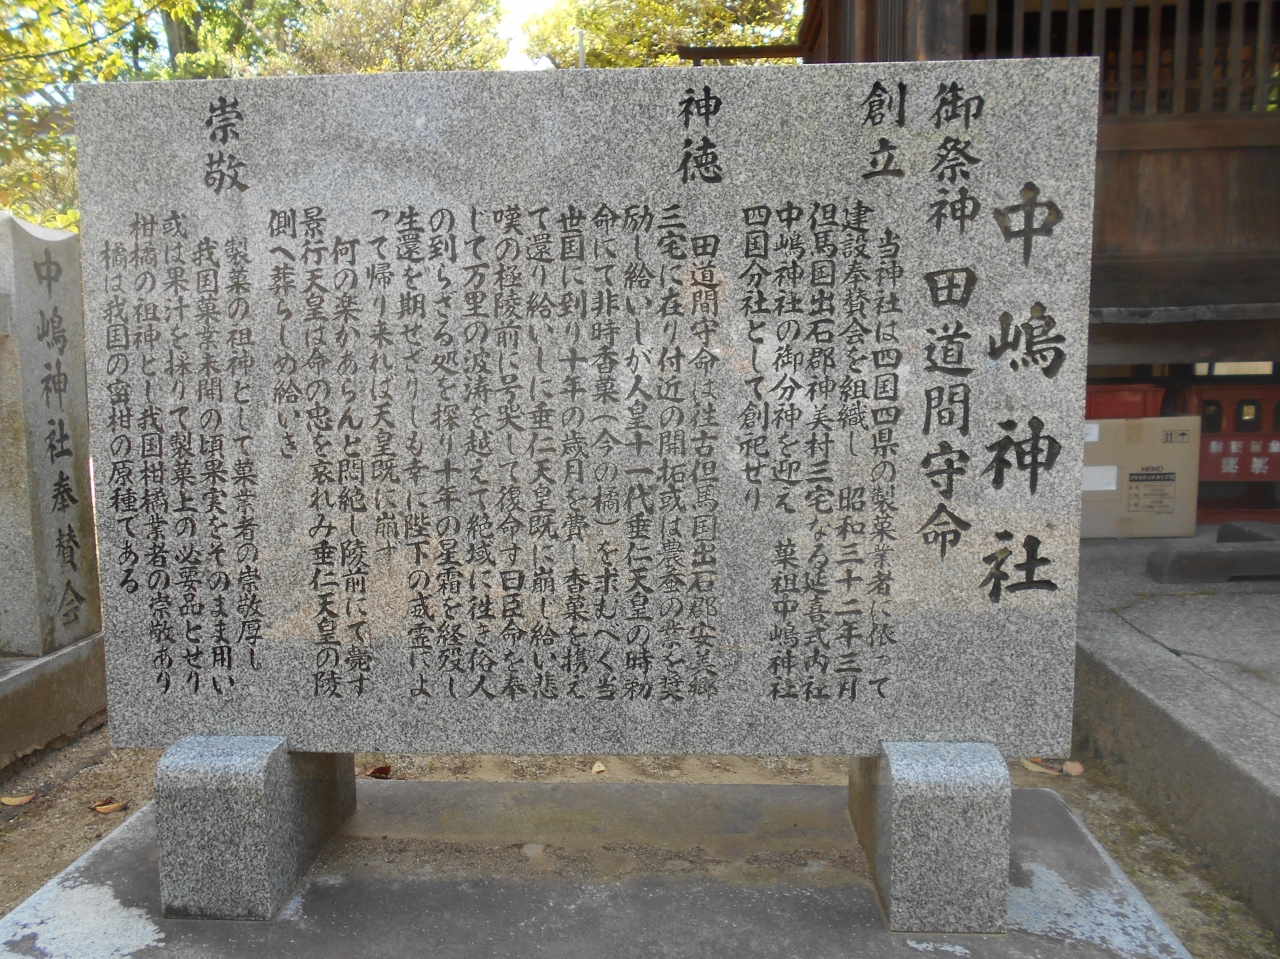 中嶋神社
御祭神 田道間守命
創立
当神社は四国四県の製菓業者に依って
建設奉賛会を組織し 昭和三十二年三月
但馬国出石郡神美村三宅なる延喜式内社
中嶋神社の御分神を迎え 菓祖中嶋神社
四国分社として創祀せり
神徳
田道間守命は往古但馬国出石郡安美郷
三宅に在り付近の開拓或は農蚕の業を奨
励し給いしが人皇十一代垂仁天皇の時勅
命にて非時香菓(今の橘)を求むべく当
世国に到り十年の歳月を費し香菓を携え
て還り給いしに垂仁天皇既に崩じ給い悲
嘆の極陵前に号哭して復命す曰臣命を奉
じて万里の波涛を越えて絶域に往き俗人
の到らざる処を探り十年の星霜を経殁し
生還を期せざりしも幸に陛下の威霊によ
って帰り来れば天皇既に崩す
何の楽かあらんと悶絶し陵前にて薨す
景行天皇は命の忠を哀れみ垂仁天皇の陵
側へ葬らしめ給いき
崇敬
製菓の祖神として菓業者の崇敬厚し
我国菓業未開の頃果実をそのまま用い
或は果汁を採りて製菓上の必要品とせり
柑橘の祖神とし我国柑橘業者の崇敬あり
橘は我国の蜜柑の原種である
中嶋神社奉賛会